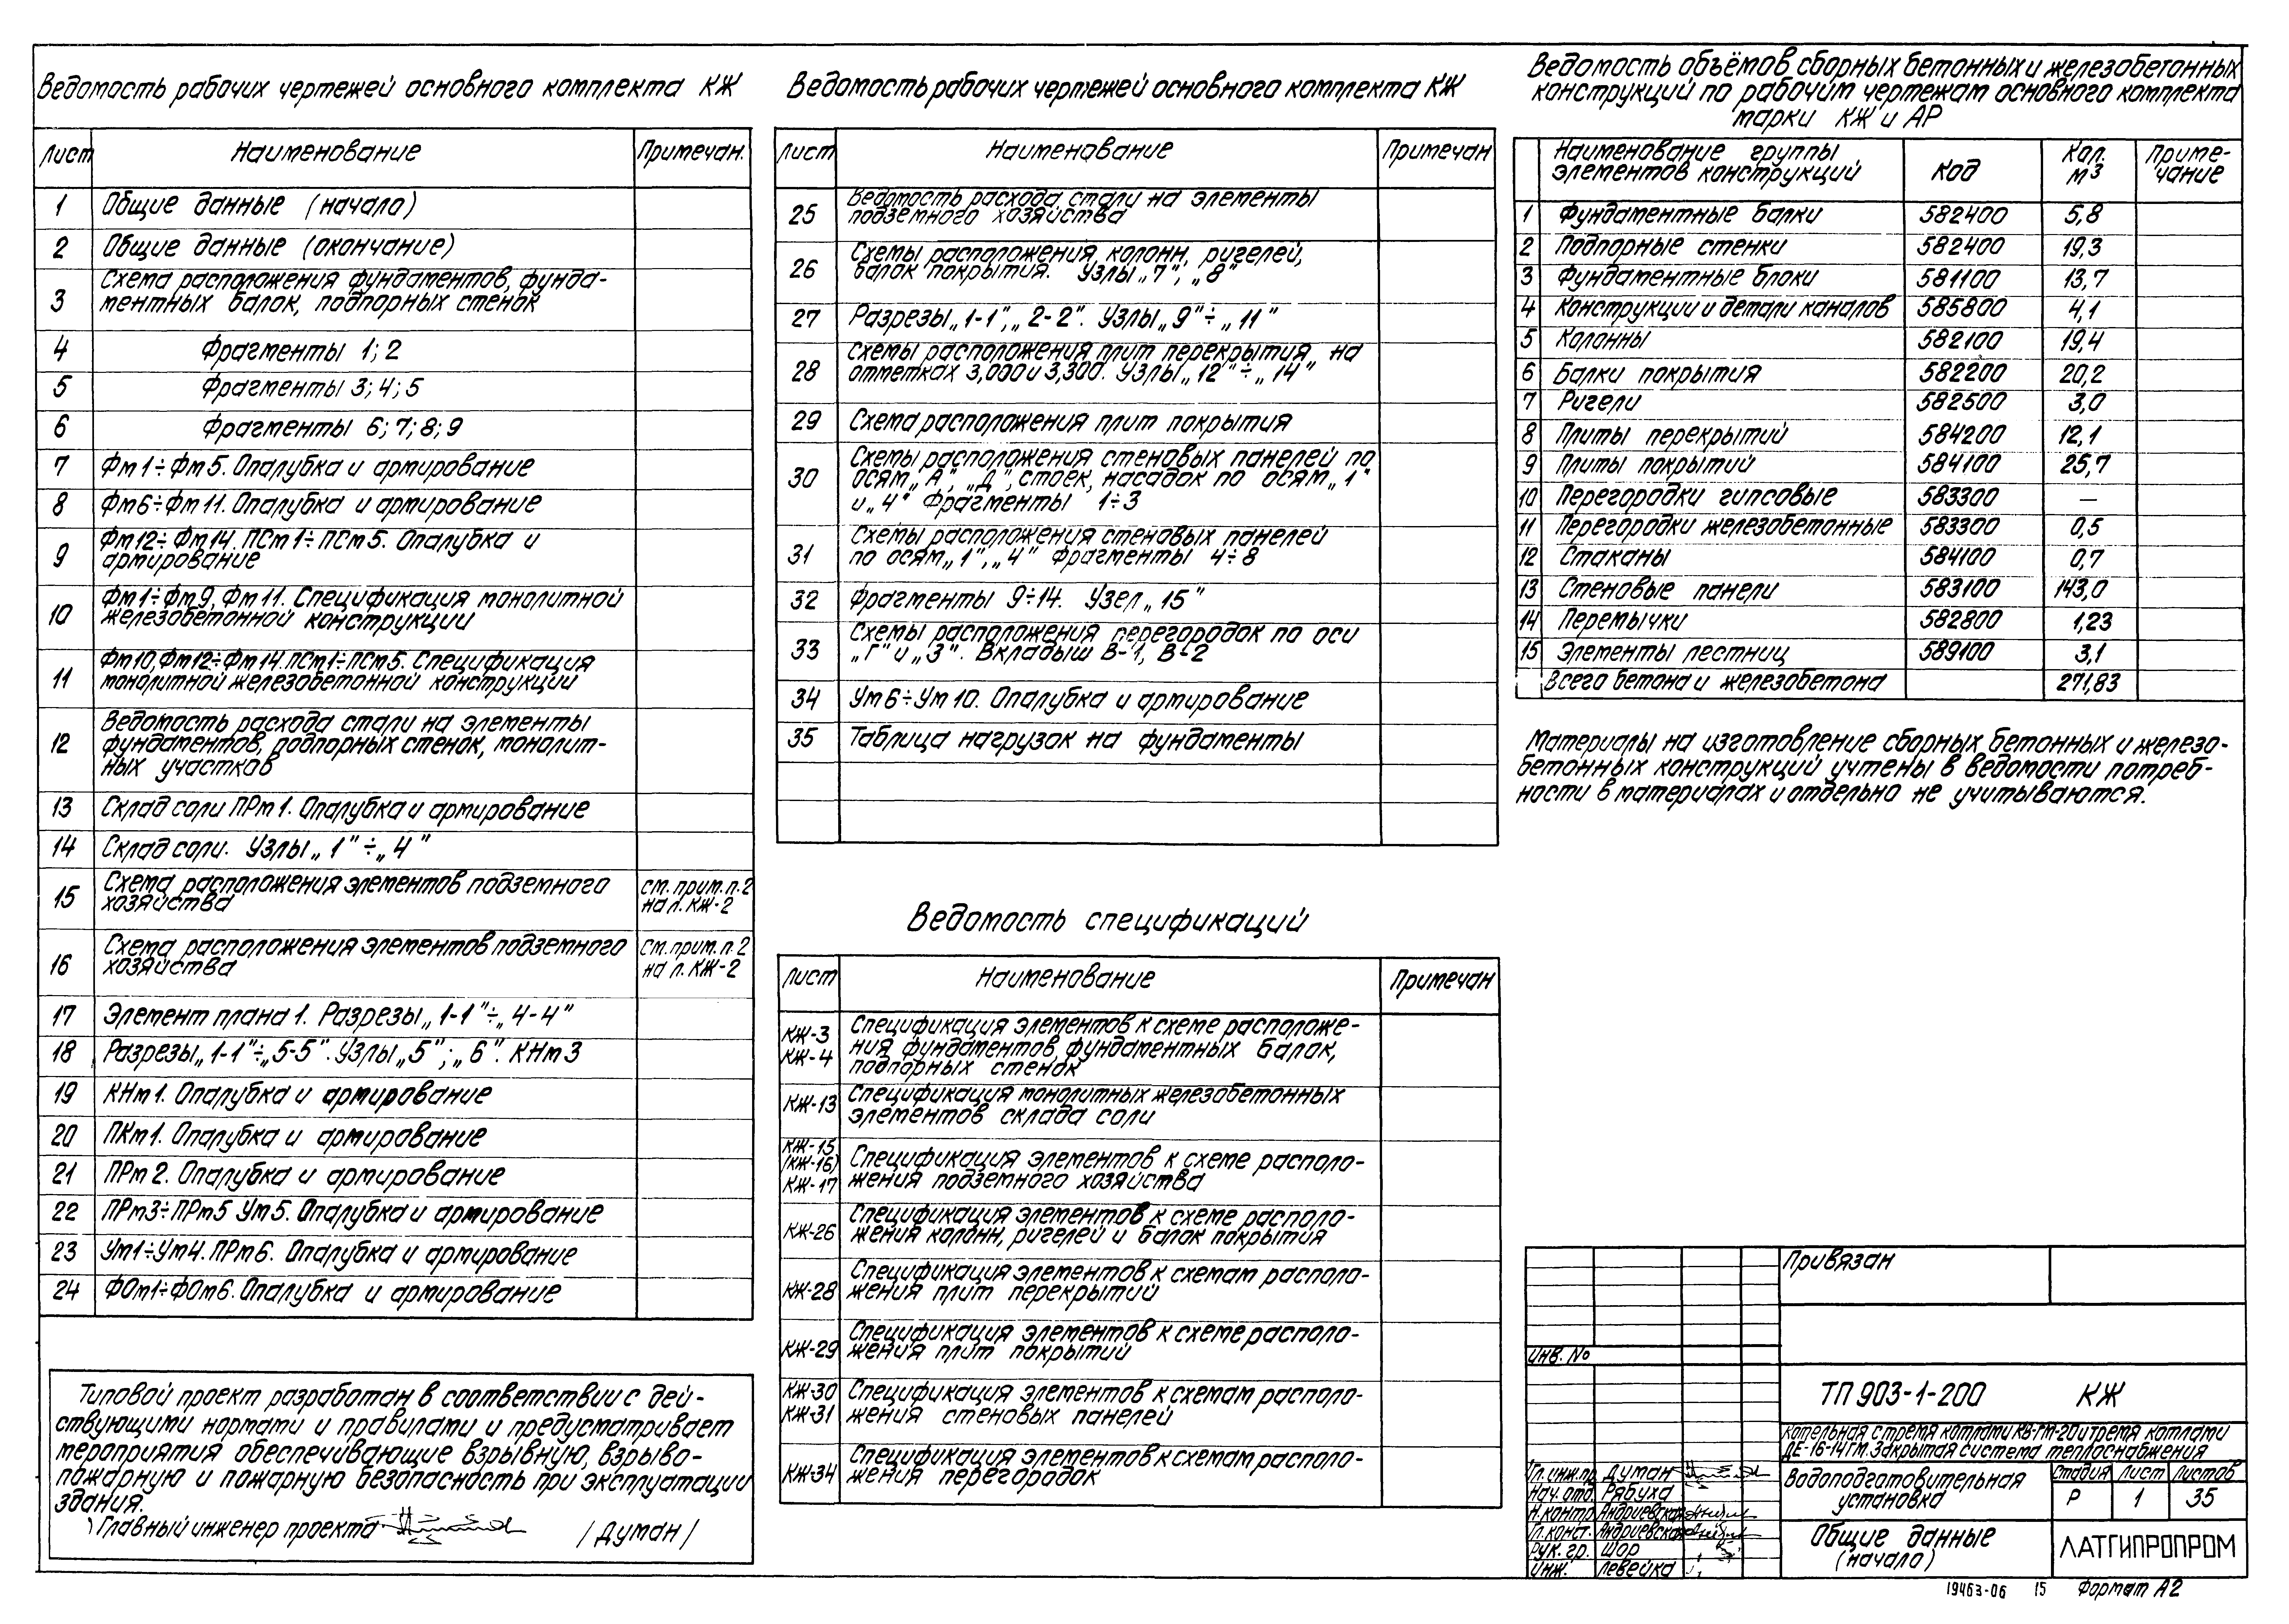 Ведомость рабочих чертежей основного комплекта КЖ
Лист Наименование Примечан.
1 Общие данные (начало)
2 Общие данные (окончание)
3 Схема расположения фундаментов, фунда-
ментных балок, подпорных стенок
4 Фрагменты 1; 2
5 Фрагменты 3; 4; 5
6 Фрагменты 6; 7; 8; 9
7 Фм1÷Фм5. Опалубка и армирование
8 Фм6÷Фм11. Опалубка и армирование
9 Фм12÷Фм14. ПСм1÷ПСм5. Опалубка и
армирование
10 Фм1÷Фм9, Фм11. Спецификация монолитной
железобетонной конструкции
11 Фм10, Фм12÷Фм14. ПСм1÷ПСм5. Спецификация
монолитной железобетонной конструкций
12 Ведомость расхода стали на элементы
фундаментов, подпорных стенок, монолит-
ных участков
13 Склад соли ПРм1. Опалубка и армирование
14 Склад соли. Узлы „1"÷„4"
15 Схема расположения элементов подземного
хозяйства
см. прим. п. 2
на л. КЖ-2
16 Схема расположения элементов подземного
хозяйства
см. прим. п. 2
на л. КЖ-2
17 Элемент плана 1. Разрезы „1-1"÷„4-4"
18 Разрезы „1-1"÷„5-5". Узлы „5"; „6". КНм3
19 КНм1. Опалубка и армирование
20 ПКм1. Опалубка и армирование
21 ПРм2. Опалубка и армирование
22 ПРм3÷ПРм5 Ум5. Опалубка и армирование
23 Ум1÷Ум4. ПРм6. Опалубка и армирование
24 ФОм1÷ФОм6. Опалубка и армирование
Типовой проект разработан в соответствии с дей-
ствующими нормами и правилами и предусматривает
мероприятия обеспечивающие взрывную, взрыво-
пожарную и пожарную безопасность при эксплуатации
здания.
Главный инженер проекта /Думан/
Ведомость рабочих чертежей основного комплекта КЖ
Лист Наименование Примечан
25 Ведомость расхода стали на элементы
подземного хозяйства
26 Схемы расположения колонн, ригелей,
балок покрытия. Узлы „7", „8"
27 Разрезы „1-1", „2-2". Узлы „9"÷„11"
28 Схемы расположения плит перекрытия на
отметках 3,000 и 3,300. Узлы „12"÷„14"
29 Схема расположения плит покрытия
30 Схемы расположения стеновых панелей по
осям „А", „Д", стоек, насадок по осям „1"
и „4" Фрагменты 1÷3
31 Схемы расположения стеновых панелей
по осям „1", „4" Фрагменты 4÷8
32 Фрагменты 9÷14. Узел „15"
33 Схемы расположения перегородок по оси
„Г" и „3". Вкладыш В-1, В-2
34 Ум6÷Ум10. Опалубка и армирование
35 Таблица нагрузок на фундаменты
Ведомость спецификаций
Лист Наименование Примечан
КЖ-3
КЖ-4
Спецификация элементов к схеме расположе-
ния фундаментов, фундаментных балок,
подпорных стенок
КЖ-13 Спецификация монолитных железобетонных
элементов склада соли
КЖ-15
(КЖ-16)
КЖ-17
Спецификация элементов к схеме располо-
жения подземного хозяйства
КЖ-26 Спецификация элементов к схеме располо-
жения колонн, ригелей и балок покрытия
КЖ-28 Спецификация элементов к схемам располо-
жения плит перекрытий
КЖ-29 Спецификация элементов к схеме располо-
жения плит покрытий
КЖ-30 Спецификация элементов к схемам располо-
КЖ-31 жения стеновых панелей
КЖ-34 Спецификация элементов к схемам располо-
жения перегородок
Ведомость объёмов сборных бетонных и железобетонных
конструкций по рабочим чертежам основного комплекта
марки КЖ и АР
Наименование группы
элементов конструкций
Код
Кол.
м3
Приме-
чание
1 Фундаментные балки 582400 5,8
2 Подпорные стенки 582400 19,3
3 Фундаментные блоки 581100 13,7
4 Конструкции и детали каналов 585800 4,1
5 Колонны 582100 19,4
6 Балки покрытия 582200 20,2
7 Ригели 582500 3,0
8 Плиты перекрытий 584200 12,1
9 Плиты покрытий 584100 25,7
10 Перегородки гипсовые 583300 —
11 Перегородки железобетонные 583300 0,5
12 Стаканы 584100 0,7
13 Стеновые панели 583100 143,0
14 Перемычки 582800 1,23
15 Элементы лестниц 589100 3,1
Всего бетона и железобетона 271,83
Материалы на изготовление сборных бетонных и железо-
бетонных конструкций учтены в ведомости потреб-
ности в материалах и отдельно не учитываются.
Привязан
Инв. №
ТП 903-1-200 КЖ
Котельная с тремя котлами КВ-ГМ-20 и тремя котлами
ДЕ-16-14ГМ. Закрытая система теплоснабжения
Гл. инж. пр. Думан
Нач. отд. Рябуха
Н. контр. Андриевская
Гл. конст. Андриевская
Рук. гр. Шор
Инж. Левейка
Водоподготовительная
установка
Стадия Лист Листов
Р 1 35
Общие данные
(начало)
ЛАТГИПРОПРОМ
19463-06 15 Формат А2